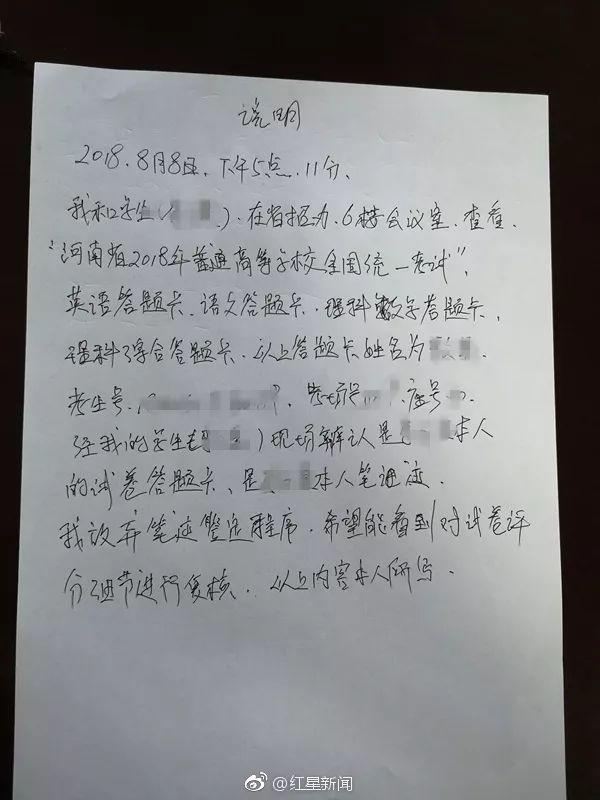 说明
2018.8月8日.下午5点.11分、
我和学生( ).在省招办.6楼会议室.查看.
"河南省2018年普通高等学校全国统一考试",
英语答题卡.语文答题卡.理科数学答题卡、
理科综合答题卡.以上答题卡姓名为
考生号. .考场号 .座号 .
经我的学生( )现场辨认是 本人
的试卷答题卡、是 本人笔迹.
我放弃笔迹鉴定程序.希望能看到对试卷评
分细节进行复核. 以上内容本人所写.
@红星新闻